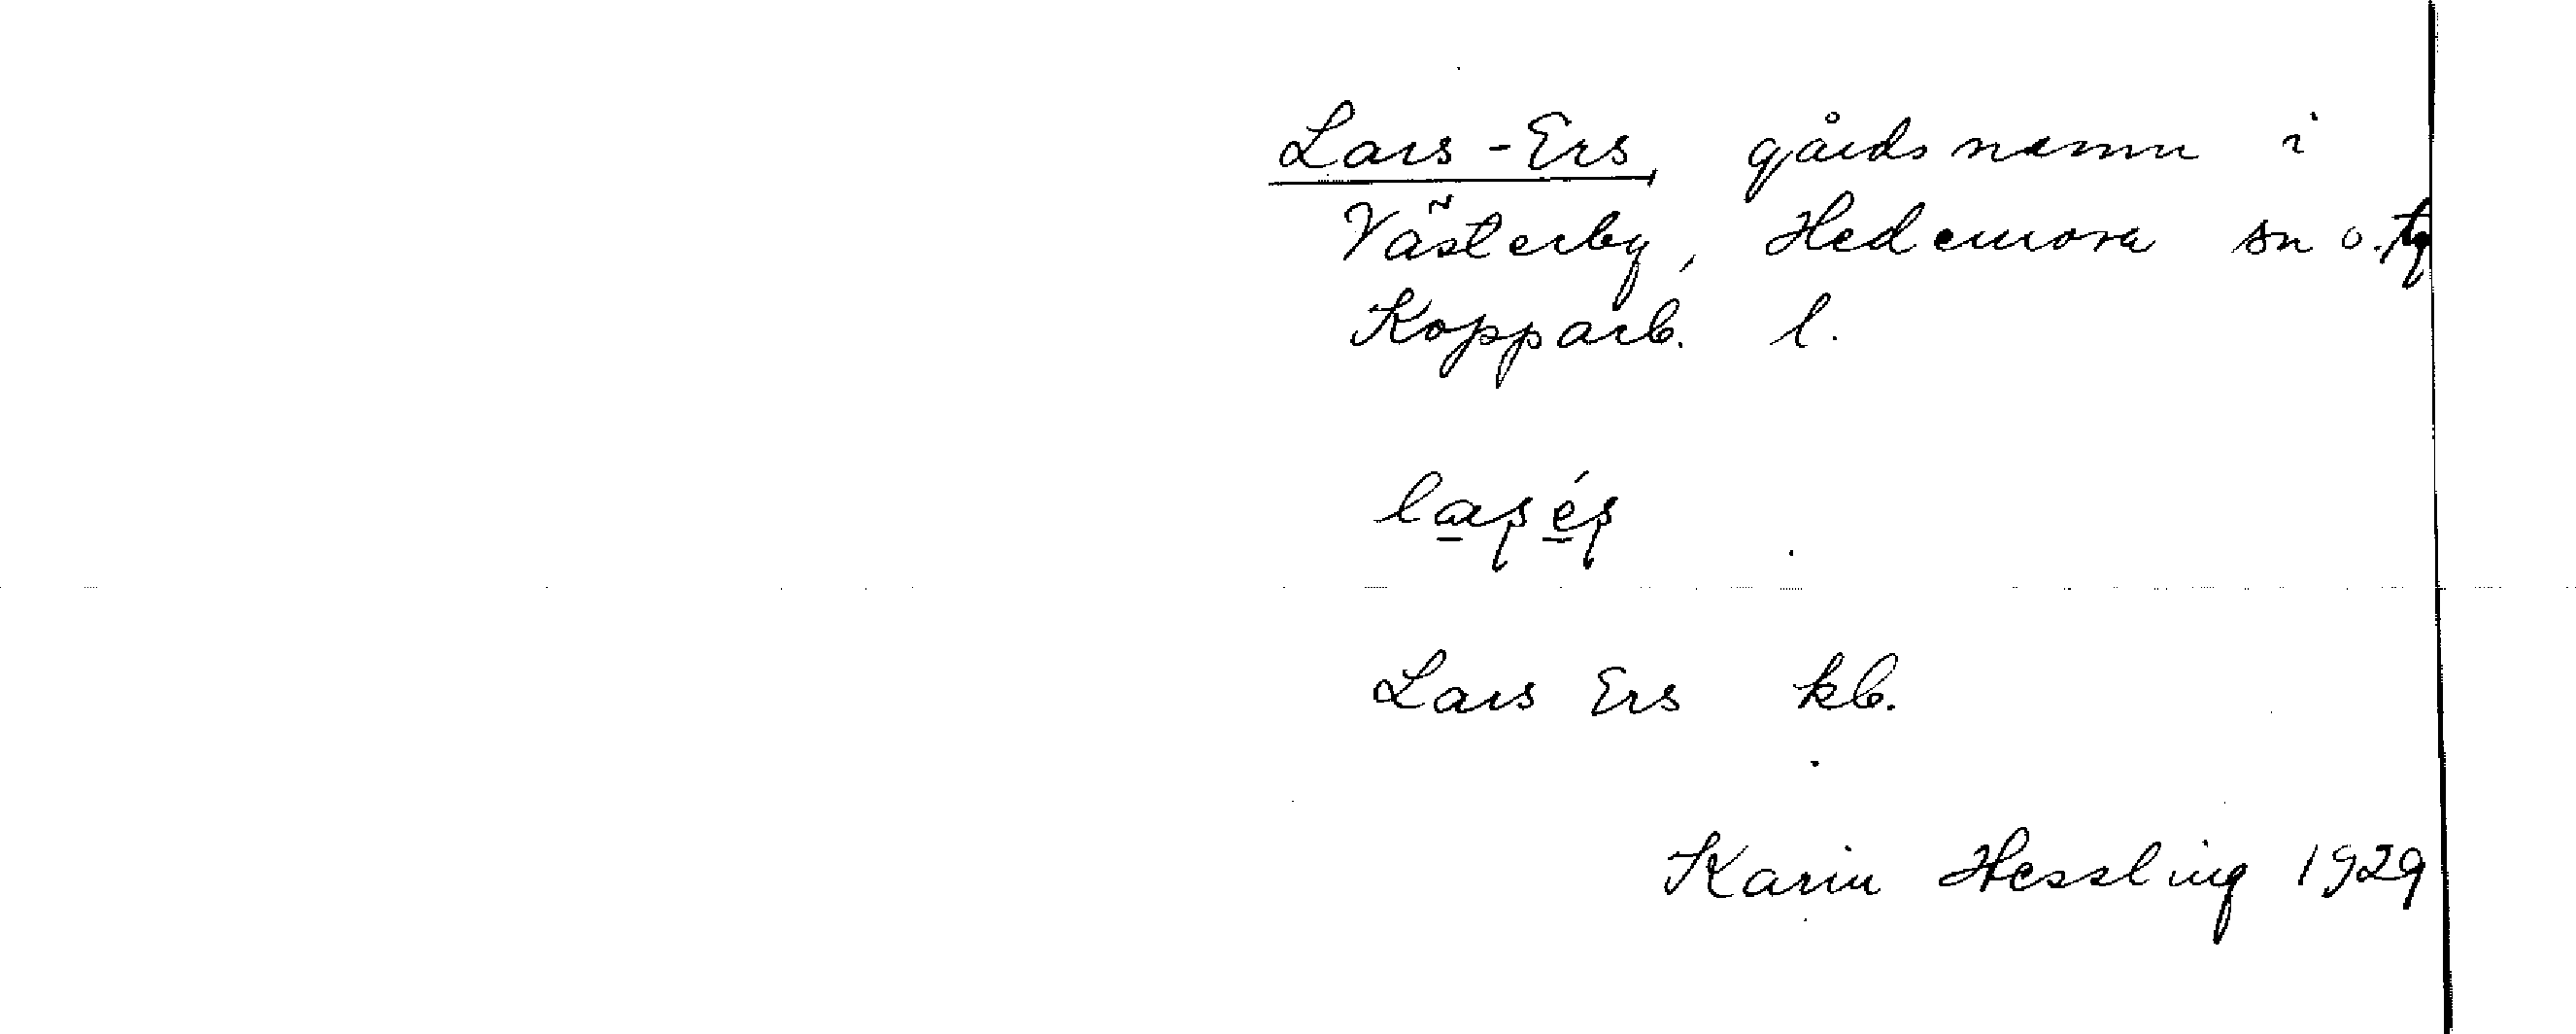 Lars-Ers, gårdsnamn i
Västerby, Hedemora sn o. tg
Kopparb. l.
Lars Ers kb.
Karin Hessling 1929